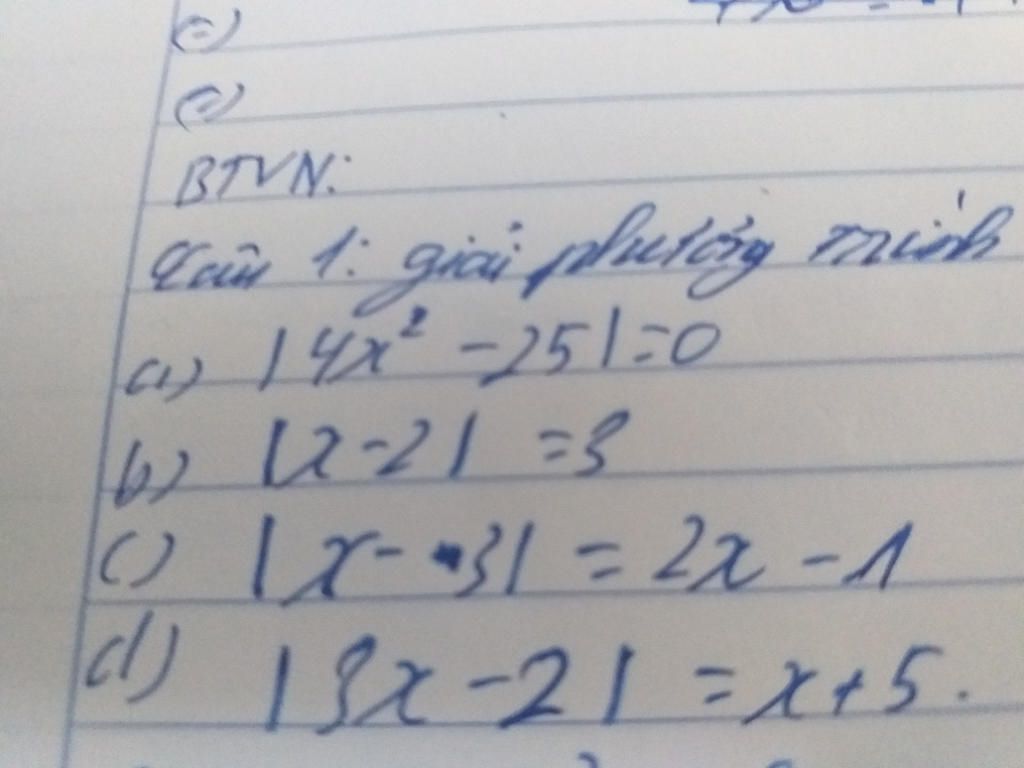 (=)
(=)
BTVN:
Câu 1: giải phương trình
a) |4x² - 25| = 0
b) |x - 2| = 3
c) |x - 3| = 2x - 1
d) |3x - 2| = x + 5.